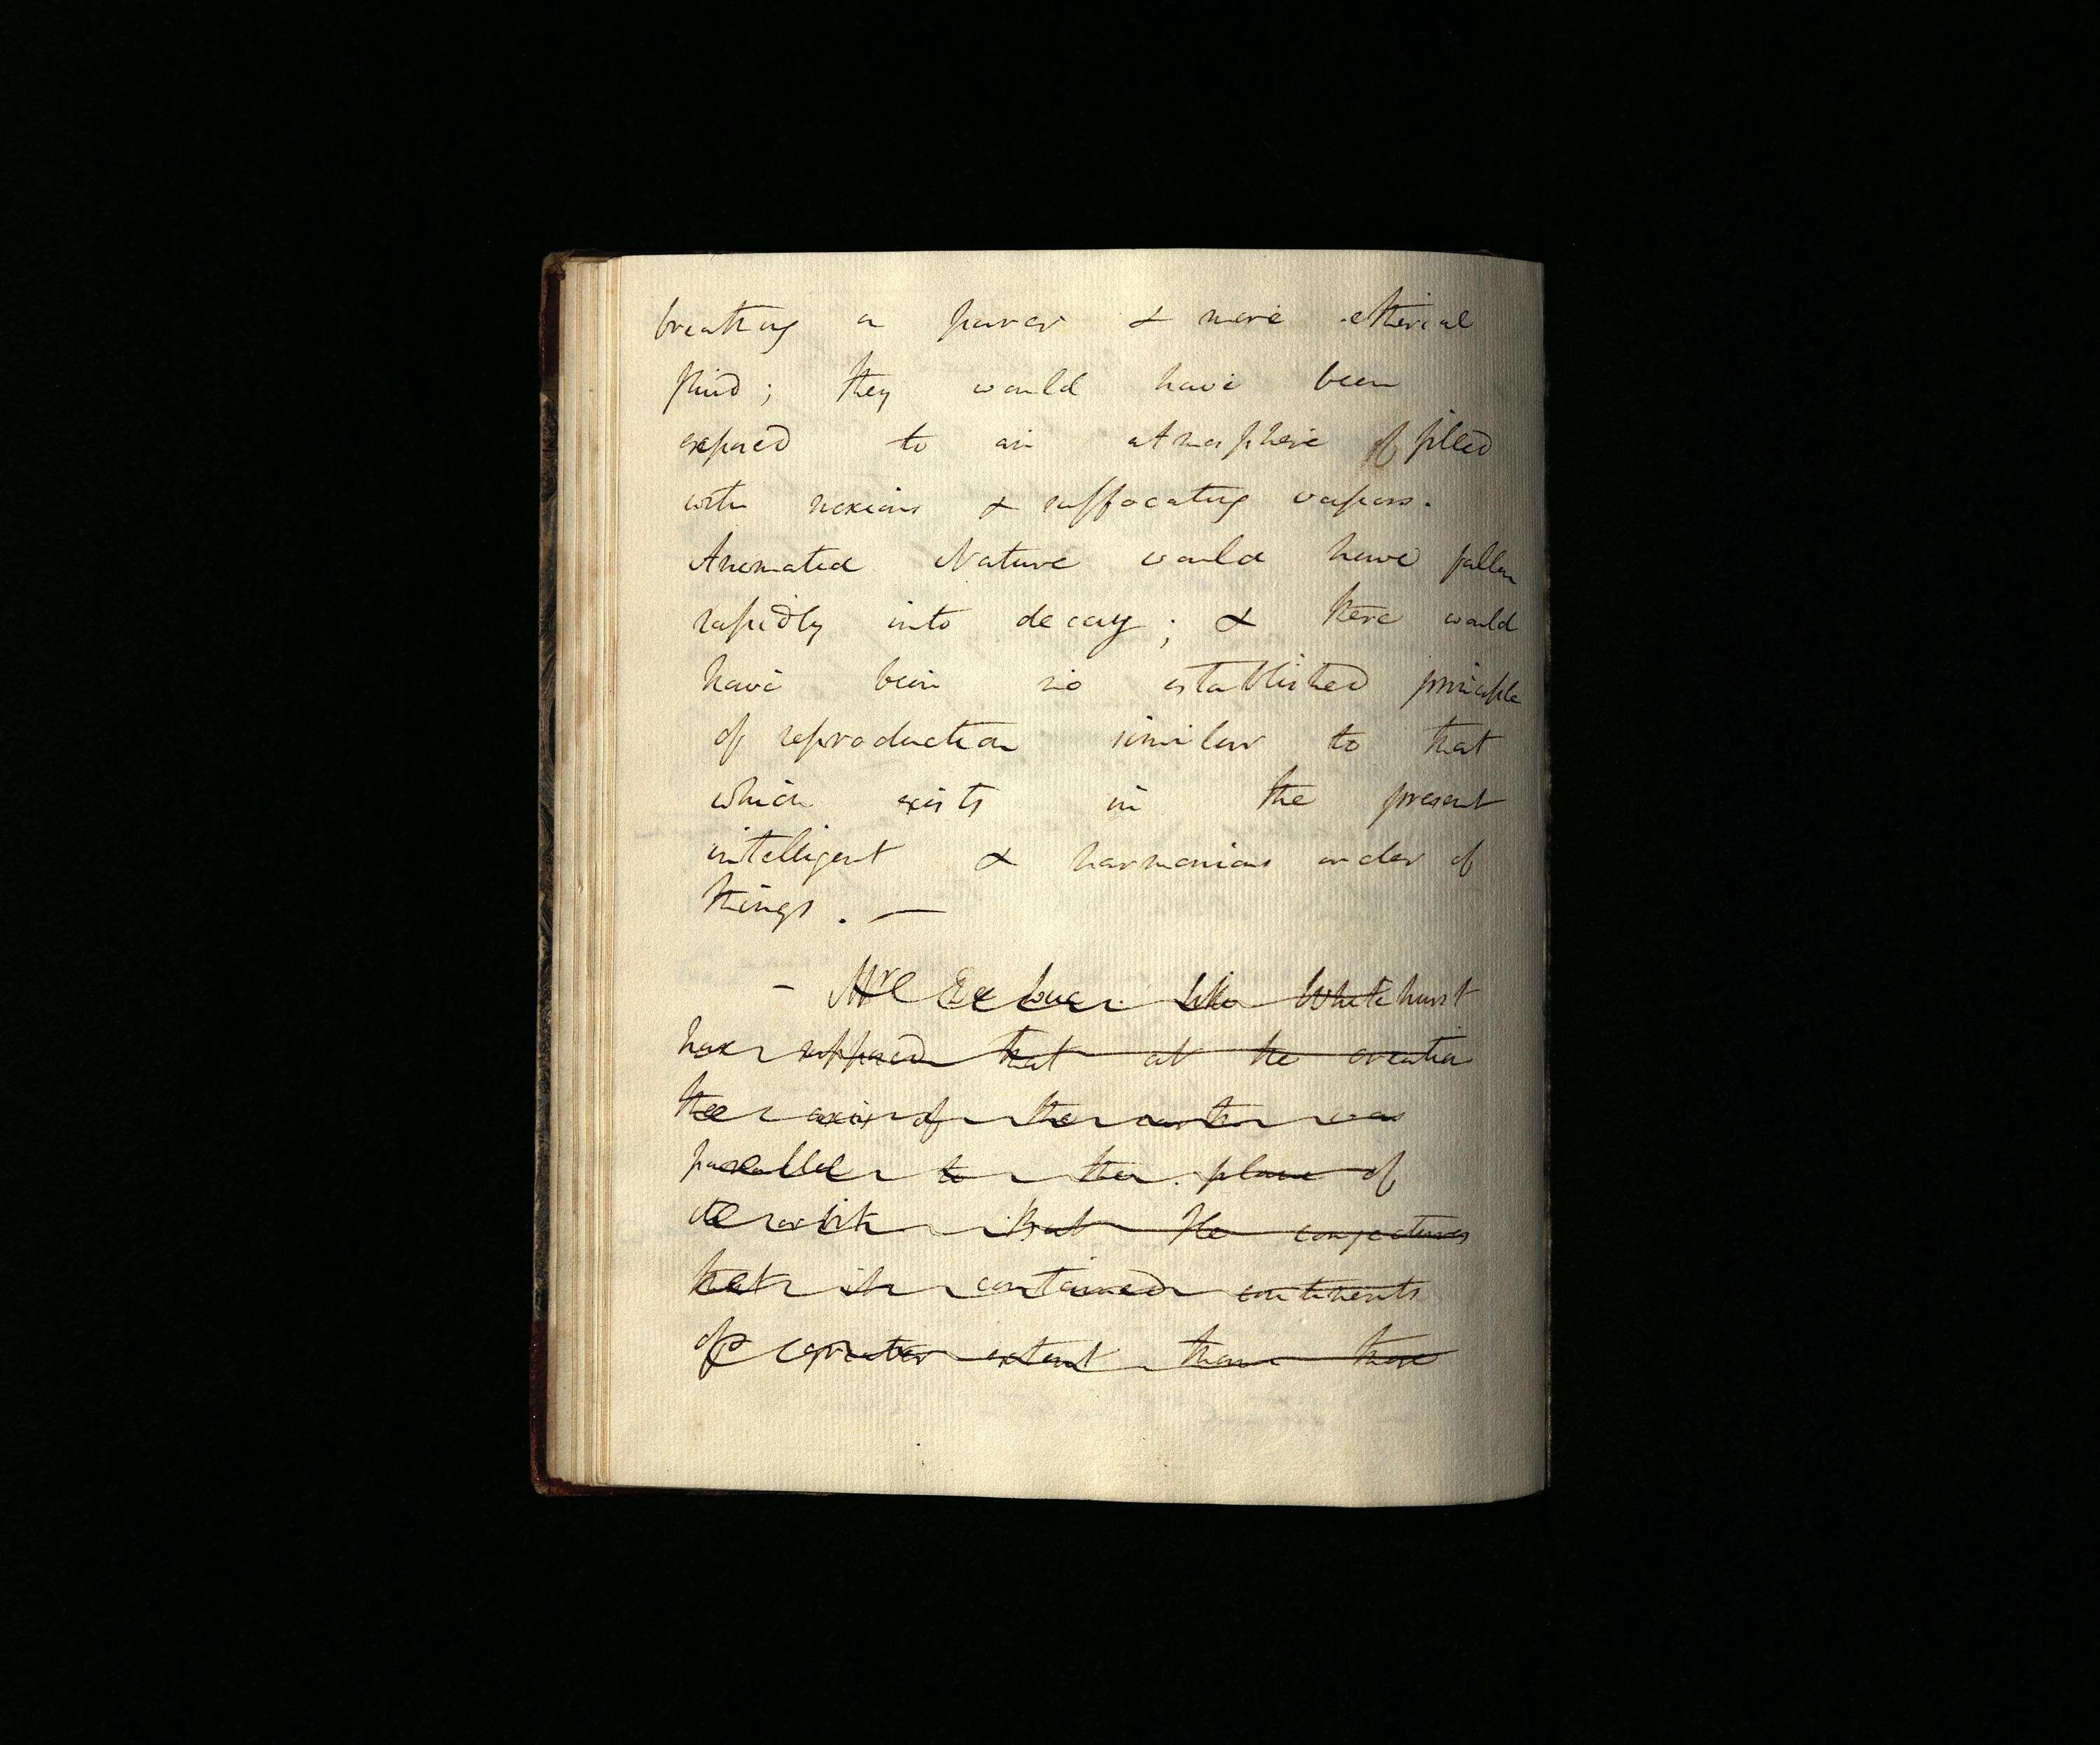 breathing a purer & more etherial
fluid; they would have been
exposed to an atmosphere of filled
with noxious & suffocating vapors.
Animated Nature would have fallen
rapidly into decay; & there would
have been no established principle
of reproduction similar to that
which exists in the present
intelligent & harmonious order of
things. —
- Mr like Whitehurst
has supposed that at the creation
the axis of the earth was
parallel to the plane of
its orbit But He conjectures
that it contained continents
of greater extent than those